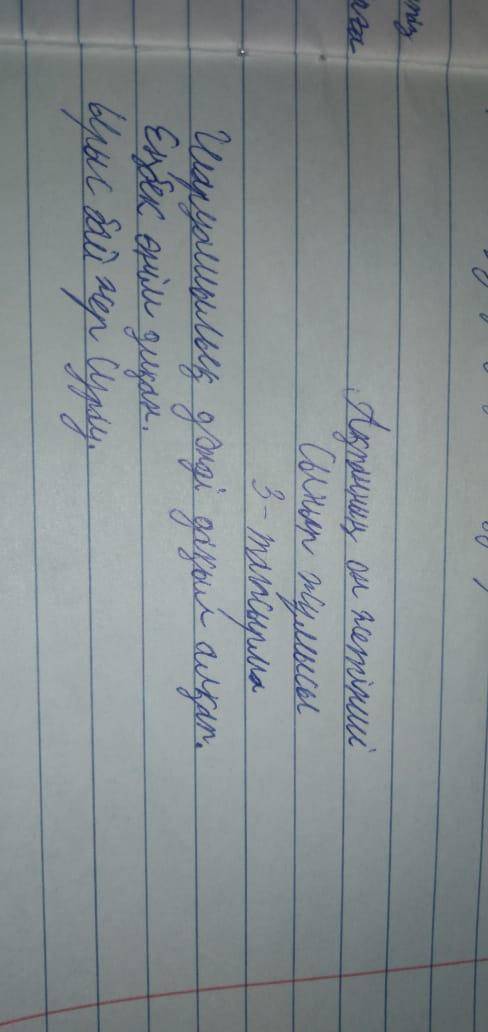 Ақпанның он жетінші
Сынып жұмысы
3-тапсырма
Шаруашылық дәнді дақыл алқап.
Еңбек өнім диқан.
Ырыс бай жер Сұрау.